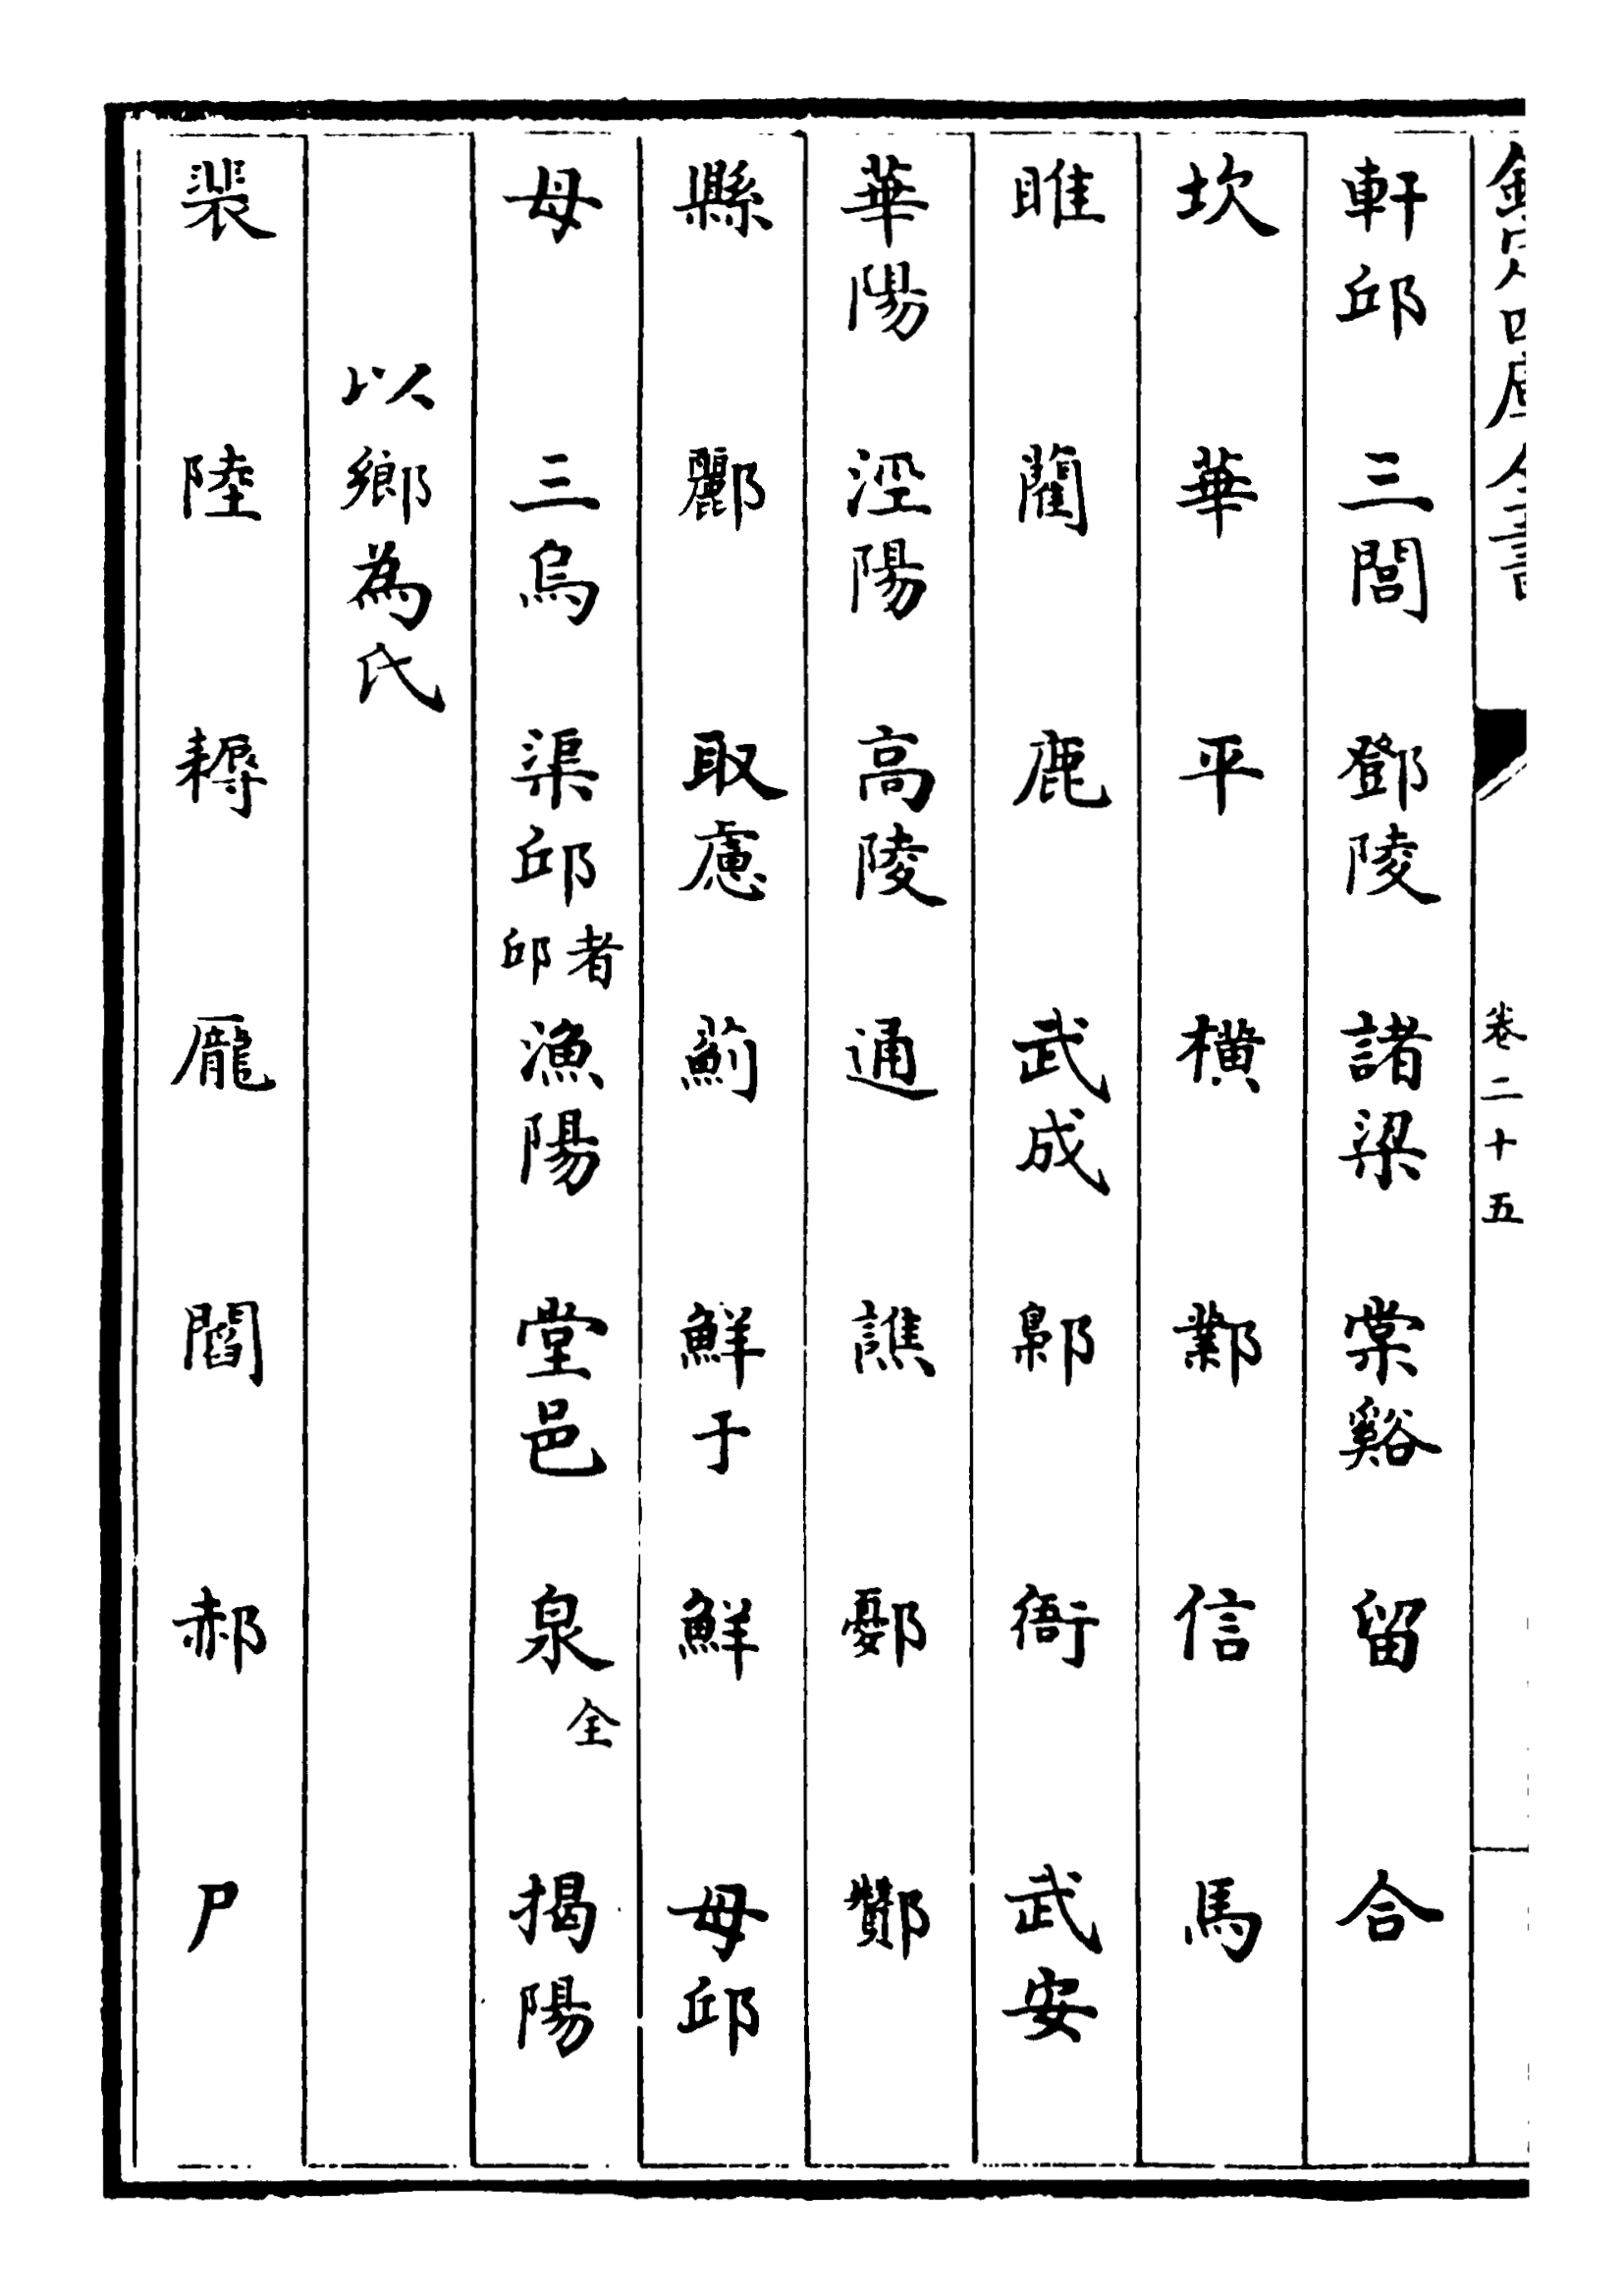 欽定四庫全書
卷二十五
軒邱 三閭 鄧陵 諸梁 棠谿 留 合
坎 華 平 橫 鄴 信 馬
睢 藺 鹿 武成 鄡 衙 武安
華陽 涇陽 高陵 通 譙 鄾 酇
縣 酈 取慮 薊 鮮于 鮮 毋邱
母 三烏 渠邱 者邱 漁陽 堂邑 泉 全 揭陽
以鄉為氏
裴 陸 耨 龎 閻 郝 尸